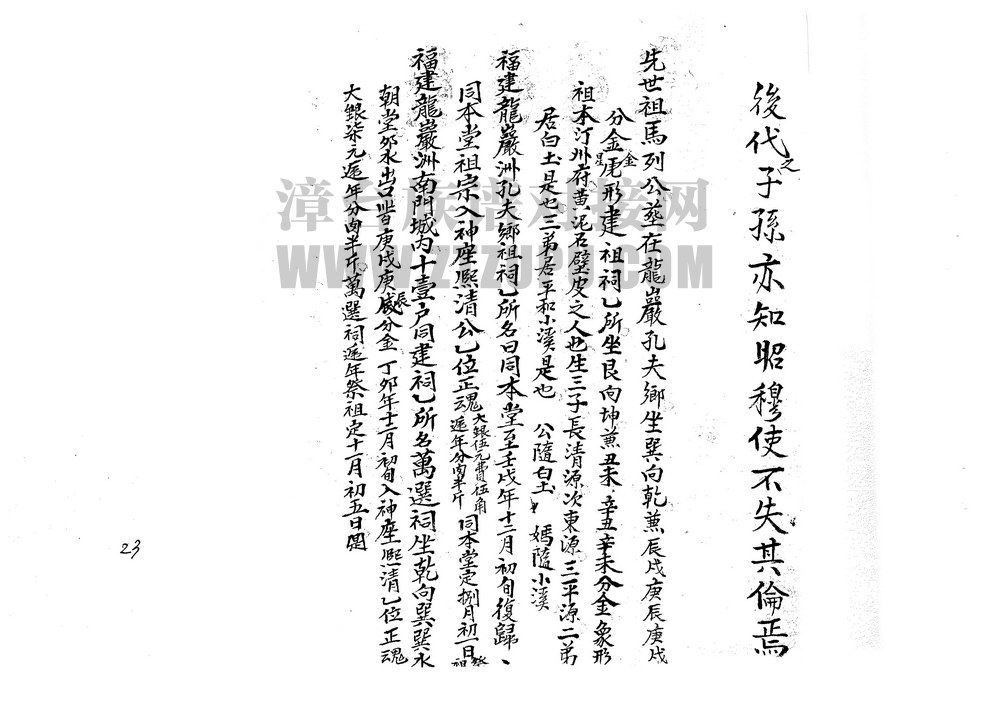 後代之子孫亦知昭穆使不失其倫焉
先世祖馬列公葬在龍巖孔夫鄉坐巽向乾兼辰戍庚辰庚戍
分金尾形建祖祠乙所坐艮向坤兼丑未辛丑辛未分金象形
祖本汀州府黃泥石壁皮之人也生三子長清源次東源三平源二弟
居白土是也三弟居平和小溪是也 公隨白土 媽隨小溪
福建龍巖洲孔夫鄉祖祠乙所名曰同本堂至壬戌年十二月初旬復歸
同本堂祖宗入神座熙清公乙位正魂大銀伍元費伍角遞年分肉半斤同本堂定捌月初一日祭祖
福建龍巖洲南門城內十壹户同建祠乙所名萬選祠坐乾向巽巽水
朝堂卯水出口皆庚戌庚辰分金丁卯年十二月初旬入神座熙清乙位正魂
大銀柒元遞年分肉半斤萬選祠遞年祭祖定十一月初五日開
23
漳台族譜对接网
WWW.ZTZUPU.COM